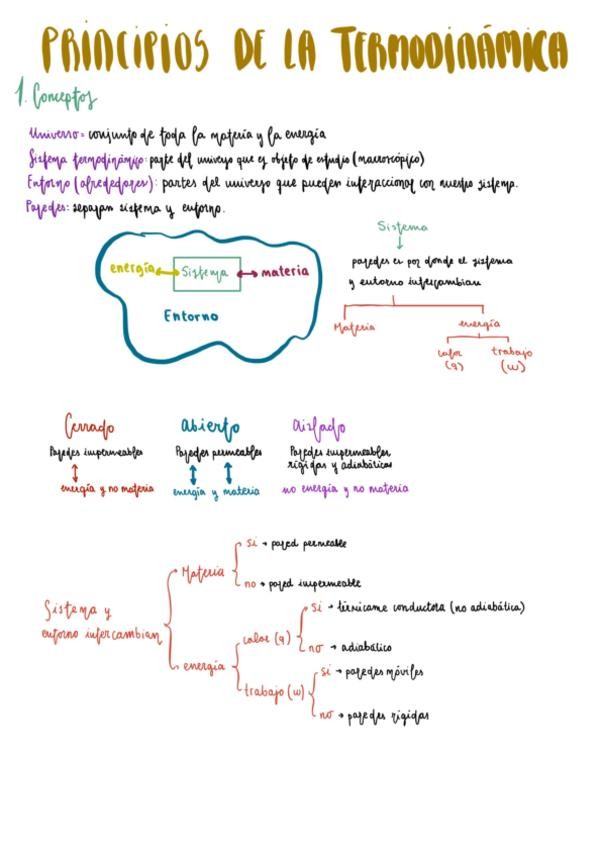 PRINCIPIOS DE LA TERMODINÁMICA
1. Conceptos
Universo = conjunto de toda la materia y la energía
Sistema termodinámico: parte del universo que es objeto de estudio (macroscópico)
Entorno (alrededores): partes del universo que pueden interaccionar con nuestro sistema.
Paredes: separan sistema y entorno.
Sistema
paredes es por donde el sistema
y entorno intercambian
Materia energía
calor trabajo
(q) (w)
energía Sistema materia
Entorno
Cerrado Abierto Aislado
Paredes impermeables Paredes permeables Paredes impermeables,
rígidas y adiabáticas
energía y no materia energía y materia no energía y no materia
Sistema y
entorno intercambian
Materia
si → pared permeable
no → pared impermeable
energía
calor (q)
si → térmicame conductora (no adiabática)
no → adiabático
trabajo (w)
si → paredes móviles
no → paredes rígidas